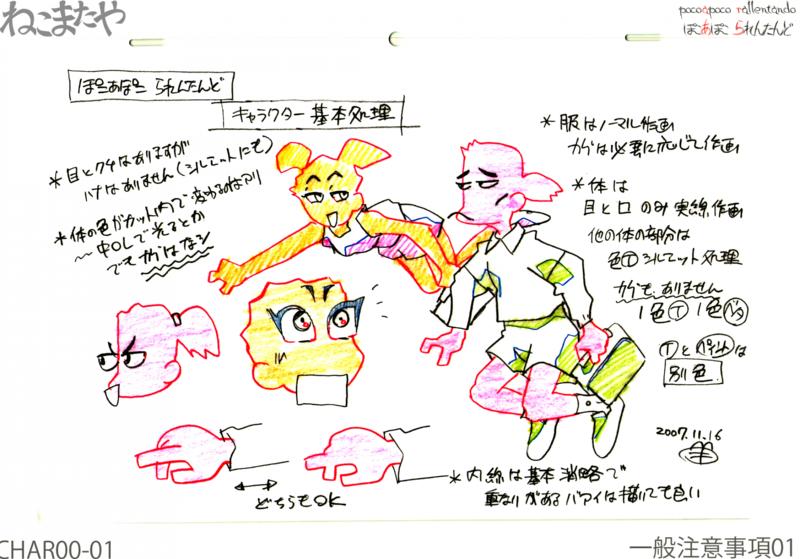 ねこまたや
poco a poco rallentando
ぽこあぽこ られんたんど
ぽこあぽこ られんたんど
キャラクター 基本処理
*目とクチはありますが
ハナはありません(シルエットにも)
*体の色がカット内で変わるのはアリ
〜中OLで光るとか
でもカゲはナシ
*服はノーマル作画
カゲは必要に応じて作画
*体は
目と口のみ実線作画
他の体の部分は
色T シルエット処理
カゲも、ありません
1色T 1色ベタ
Tとペイントは
別色
2007.11.16
どちらもOK
*内線は基本消略で
重なりがあるバアイは描いても良い
CHAR00-01
一般注意事項01